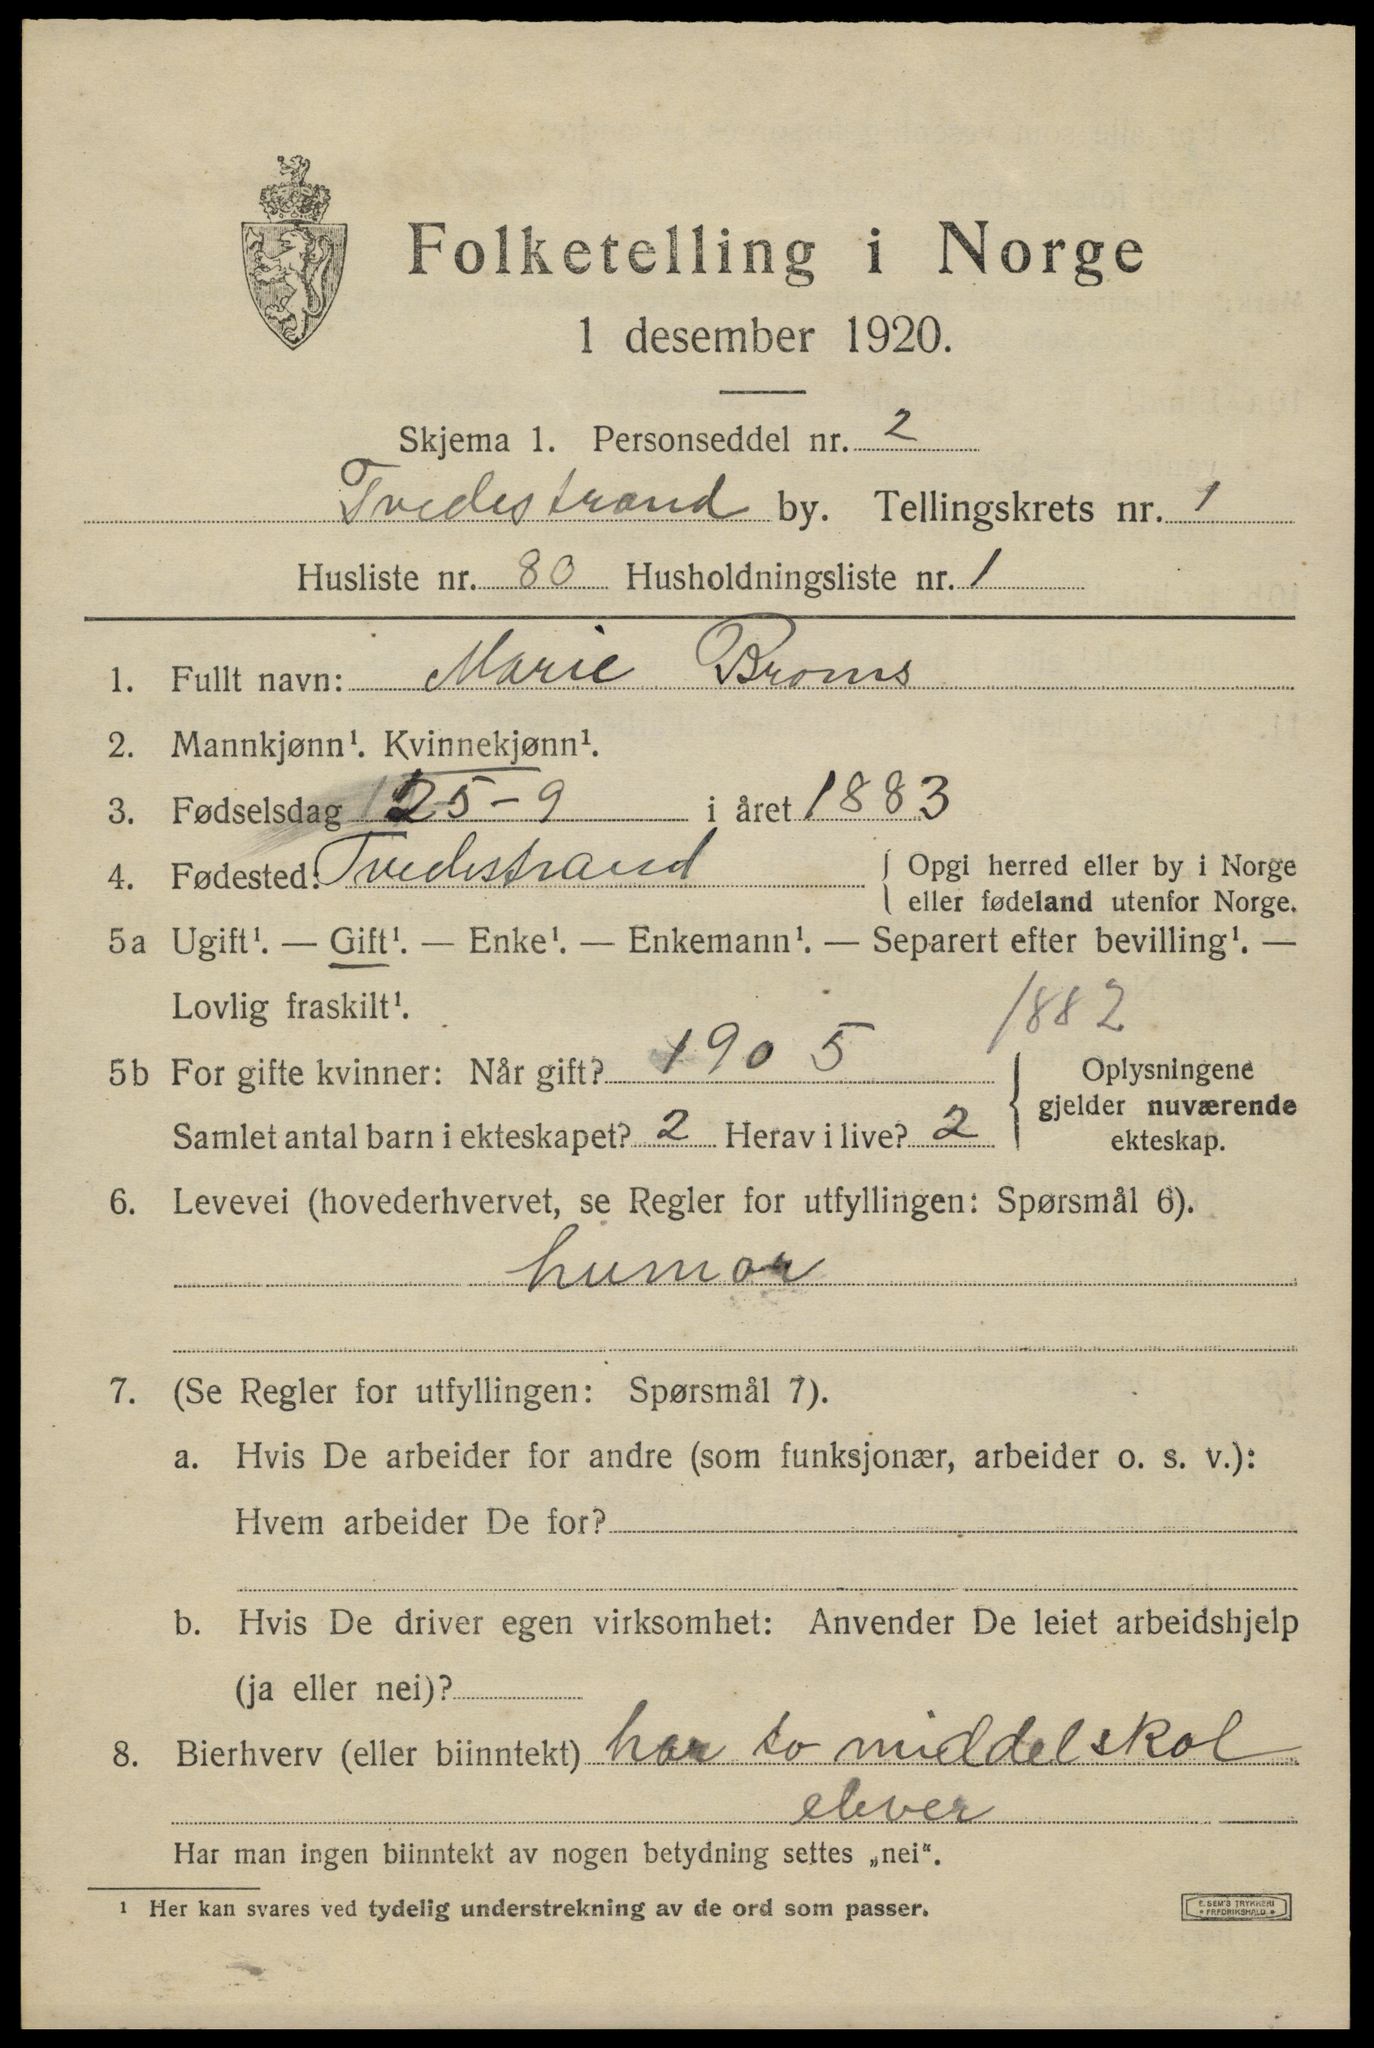 Folketelling i Norge
1 desember 1920.
Skjema 1. Personseddel nr. 2
Tvedestrand by. Tellingskrets nr. 1
Husliste nr. 80 Husholdningsliste nr. 1
1. Fullt navn: Marie Broms
2. Mannkjønn¹. Kvinnekjønn¹.
3. Fødselsdag 25-9 i året 1883
4. Fødested: Tvedestrand { Opgi herred eller by i Norge
eller fødeland utenfor Norge.
5a Ugift¹. — Gift¹. — Enke¹. — Enkemann¹. — Separert efter bevilling¹. —
Lovlig fraskilt¹.
1882
5b For gifte kvinner: Når gift? 1905
Samlet antal barn i ekteskapet? 2 Herav i live? 2
{ Oplysningene
gjelder nuværende
ekteskap.
6. Levevei (hovederhvervet, se Regler for utfyllingen: Spørsmål 6).
humor
7. (Se Regler for utfyllingen: Spørsmål 7).
a. Hvis De arbeider for andre (som funksjonær, arbeider o. s. v.):
Hvem arbeider De for?
b. Hvis De driver egen virksomhet: Anvender De leiet arbeidshjelp
(ja eller nei)?
8. Bierhverv (eller biinntekt) har to middelskol
elever
Har man ingen biinntekt av nogen betydning settes „nei“.
¹ Her kan svares ved tydelig understrekning av de ord som passer.
E. SEM'S TRYKKERI
* FREDRIKSHALD *